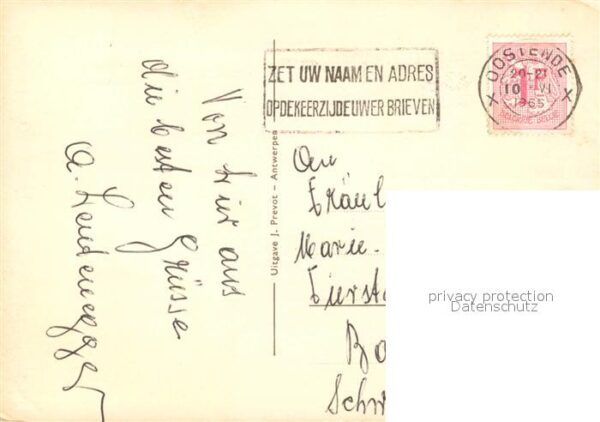 ZET UW NAAM EN ADRES
OP DE KEERZIJDE UWER BRIEVEN
OOSTENDE
20-21
10 VI
1965
BELGIQUE-BELGIE
Von hier aus
die besten Grüsse
Uitgave J. Prevot – Antwerpen
An
Fräul
Marie-
Ba
Schw
privacy protection
Datenschutz